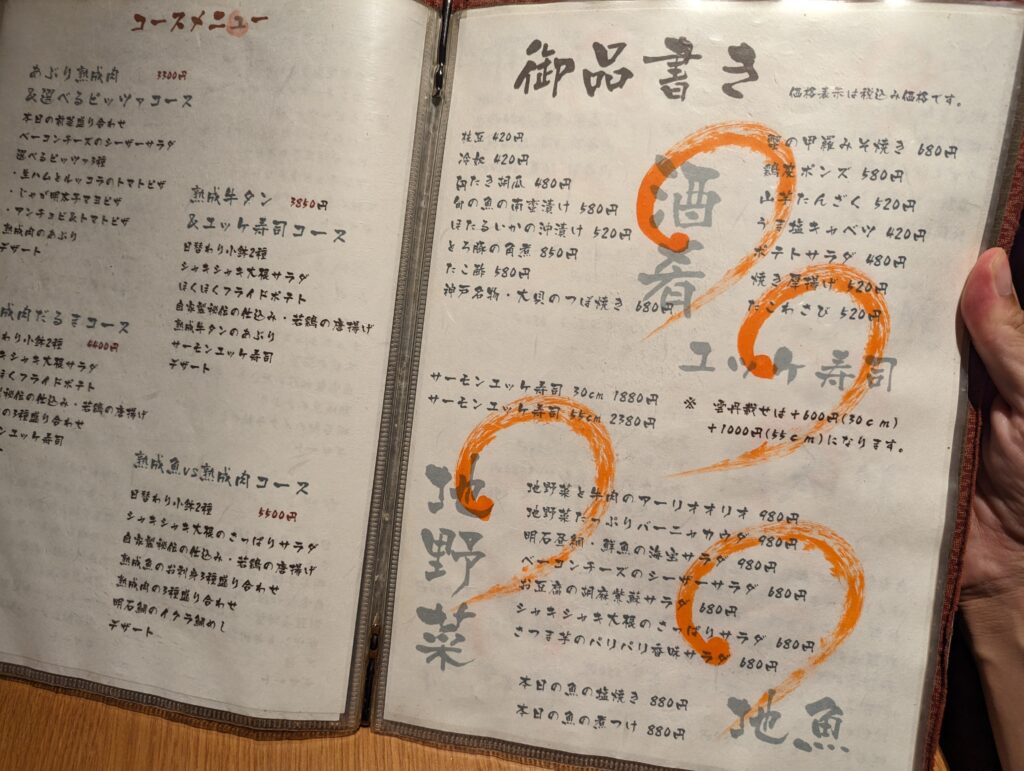 コースメニュー
あぶり熟成肉 3300円
&選べるピッツァコース
本日の前菜盛り合わせ
ベーコンチーズのシーザーサラダ
選べるピッツァ3種
・生ハムとルッコラのトマトピザ
・じゃが明太子マヨピザ
・アンチョビ&トマトピザ
熟成肉のあぶり
デザート
熟成牛タン 3850円
&ユッケ寿司コース
日替わり小鉢2種
シャキシャキ大根サラダ
ほくほくフライドポテト
自家製秘伝の仕込み・若鶏の唐揚げ
熟成牛タンのあぶり
サーモンユッケ寿司
デザート
成肉だるまコース
わり小鉢2種 4400円
キシャキ大根サラダ
くほくフライドポテト
秘伝の仕込み・若鶏の唐揚げ
の3種盛り合わせ
ンユッケ寿司
熟成魚VS熟成肉コース
日替わり小鉢2種 5500円
シャキシャキ大根のさっぱりサラダ
自家製秘伝の仕込み・若鶏の唐揚げ
熟成魚のお刺身3種盛り合わせ
熟成肉の3種盛り合わせ
明石鯛のイクラ鯛めし
デザート
御品書き
価格表示は税込み価格です。
酒肴
枝豆 420円
冷奴 420円
たたき胡瓜 480円
旬の魚の南蛮漬け 580円
ほたるいかの沖漬け 520円
とろ豚の角煮 850円
たこ酢 580円
神戸名物・大貝のつぼ焼き 680円
蟹の甲羅みそ焼き 680円
鶏皮ポンズ 580円
山芋たんざく 520円
うま塩キャベツ 420円
ポテトサラダ 480円
焼き厚揚げ 520円
たこわさび 520円
ユッケ寿司
サーモンユッケ寿司 30cm 1880円
サーモンユッケ寿司 55cm 2380円
※ 雲丹載せは+600円(30cm)
+1000円(55cm)になります。
地野菜
地野菜と牛肉のアーリオオリオ 980円
地野菜たっぷりバーニャカウダ 980円
明石昼網・鮮魚の海宝サラダ 980円
ベーコンチーズのシーザーサラダ 680円
お豆腐の胡麻紫蘇サラダ 680円
シャキシャキ大根のさっぱりサラダ 680円
さつま芋のパリパリ香味サラダ 680円
地魚
本日の魚の塩焼き 880円
本日の魚の煮つけ 880円